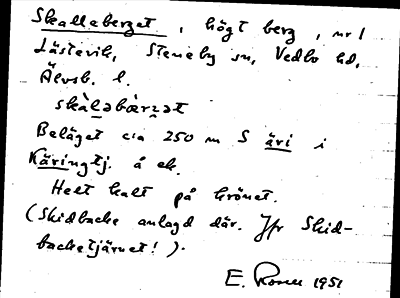 Skallaberget, högt berg, nr 1
Lästevik, Steneby sn, Vedbo hd,
Älvsb. l.
skàlabàrzət
Beläget c:a 250 m S äri i
Käringtj. å ek.
Helt kalt på krönet.
(Skidbacke anlagd där. Jfr Skid-
backetjärnet!).
E. 1951